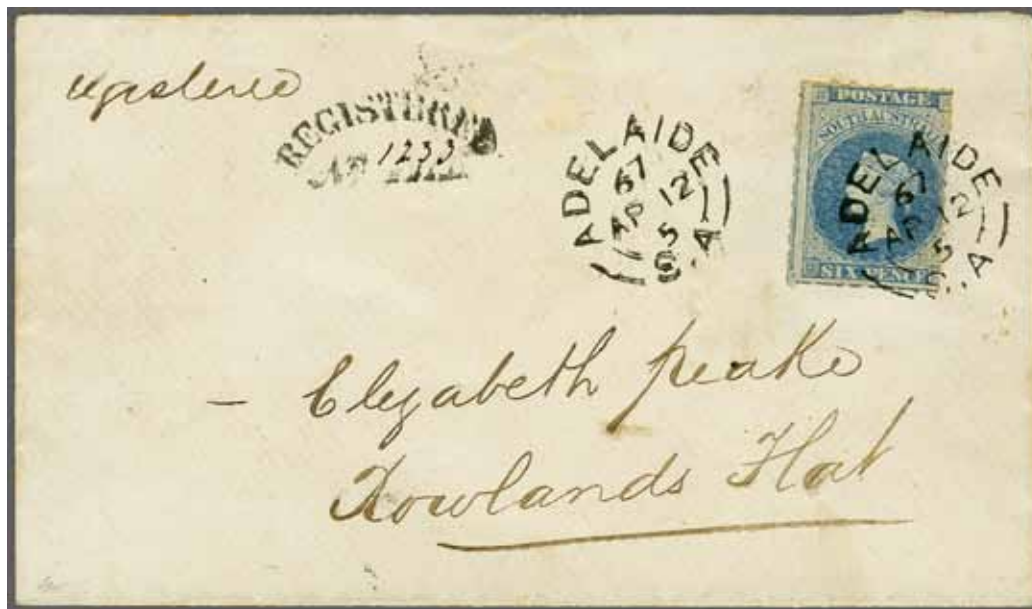 registered
REGISTERED
1233
ADELAIDE
67
AP 12
5
S.A
POSTAGE
SOUTH AUSTRALIA
SIX PENCE
ADELAIDE
67
AP 12
5
S.A
– Elizabeth Peake
Rowlands Flat